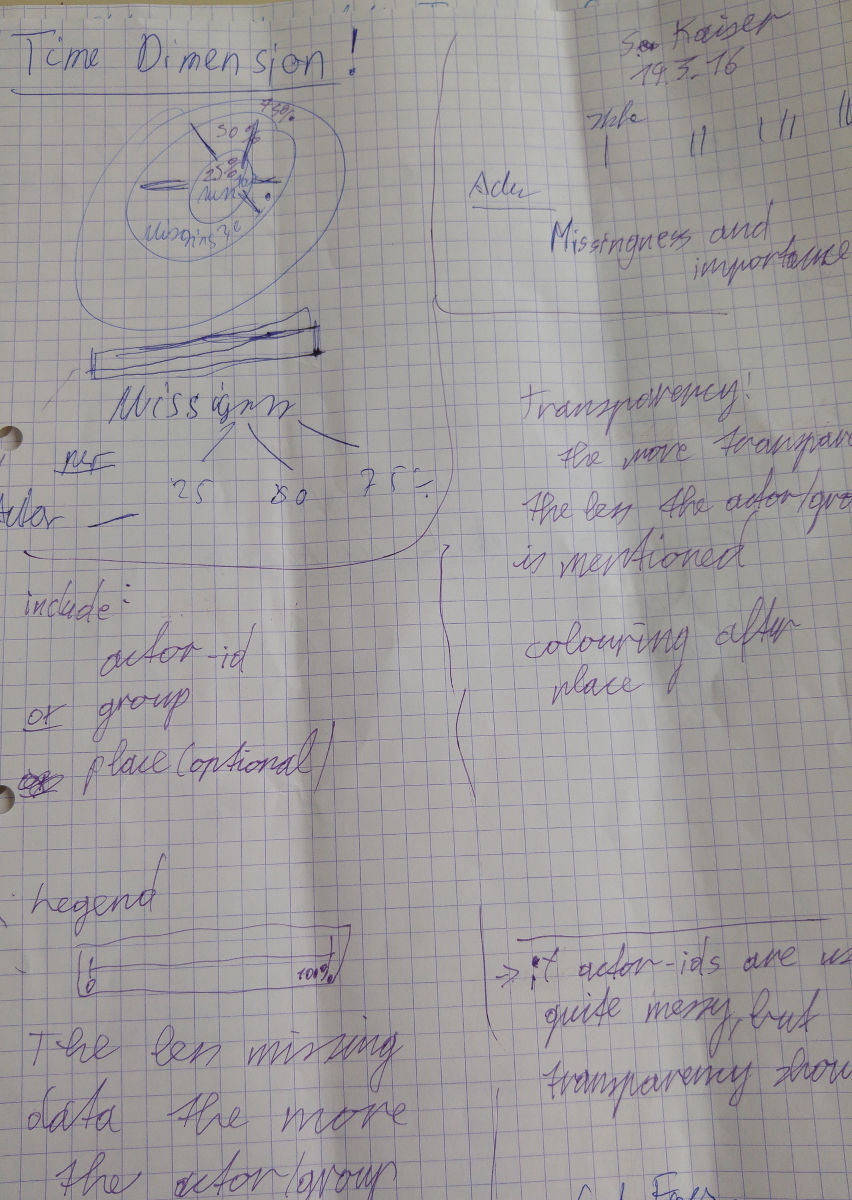 Time Dimension!
75%
50%
25%
Missing
per
Actor
25 50 75%
include:
actor-id
or group
place (optional)
Legend
0 100%
The less missing
data the more
the actor/group
Kaiser
19.3.16
I II III II
Missingness and
importance
Transparency:
the more transpare
the less the actor/gro
is mentioned
colouring after
place
→ if actor-ids are us
quite messy, but
transparency show